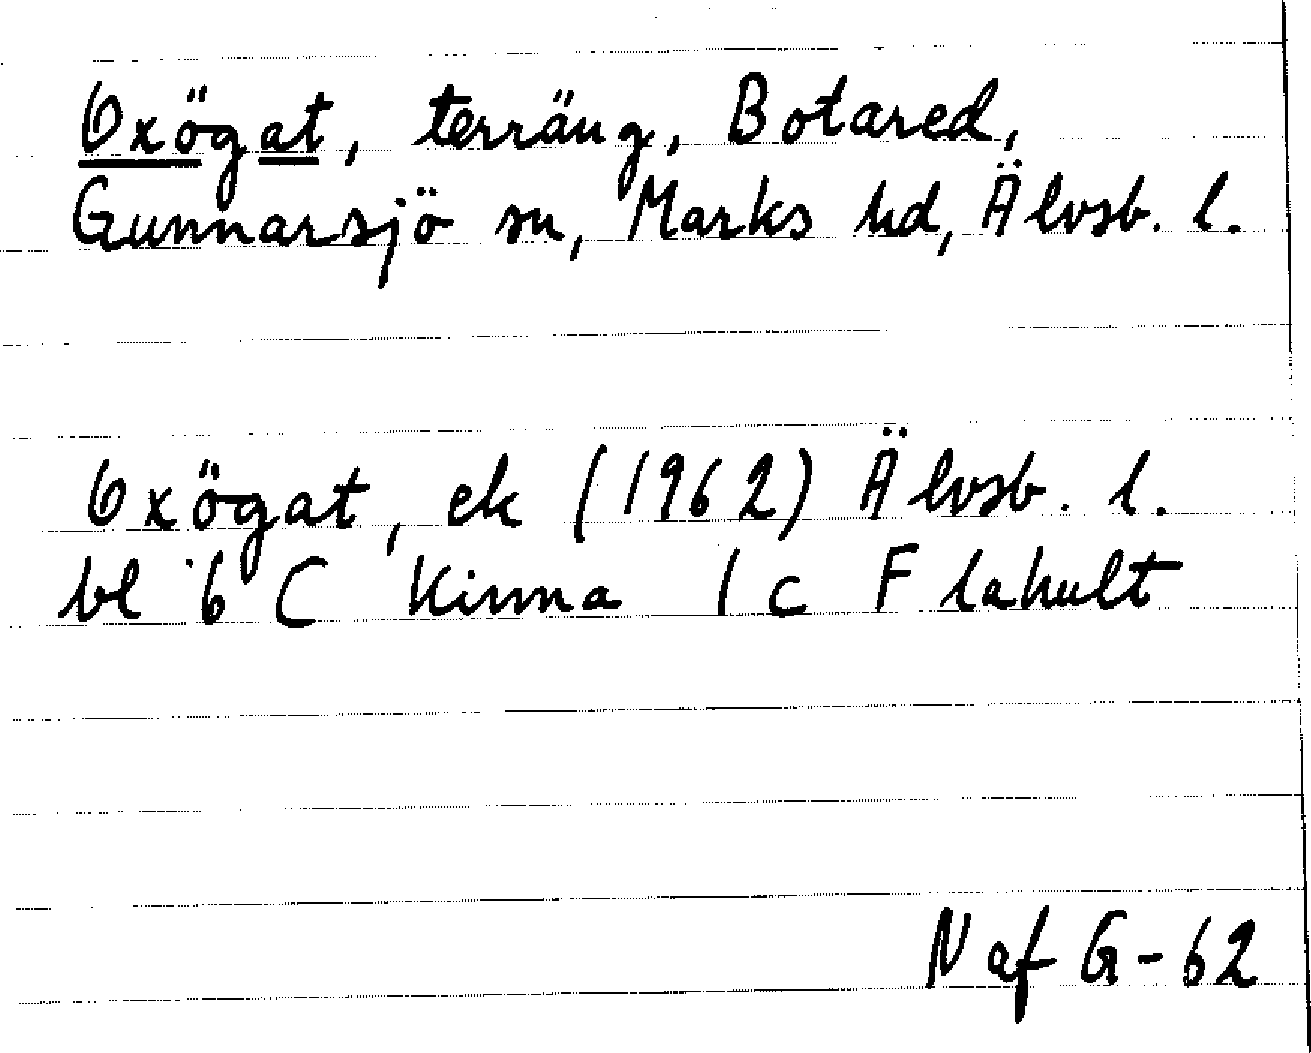 Oxögat, terräng, Botared,
Gunnarsjö sn, Marks hd, Älvsb. l.
Oxögat, ek (1962) Älvsb. l.
bl 6 C Kinna 1 c Flahult
N af G-62